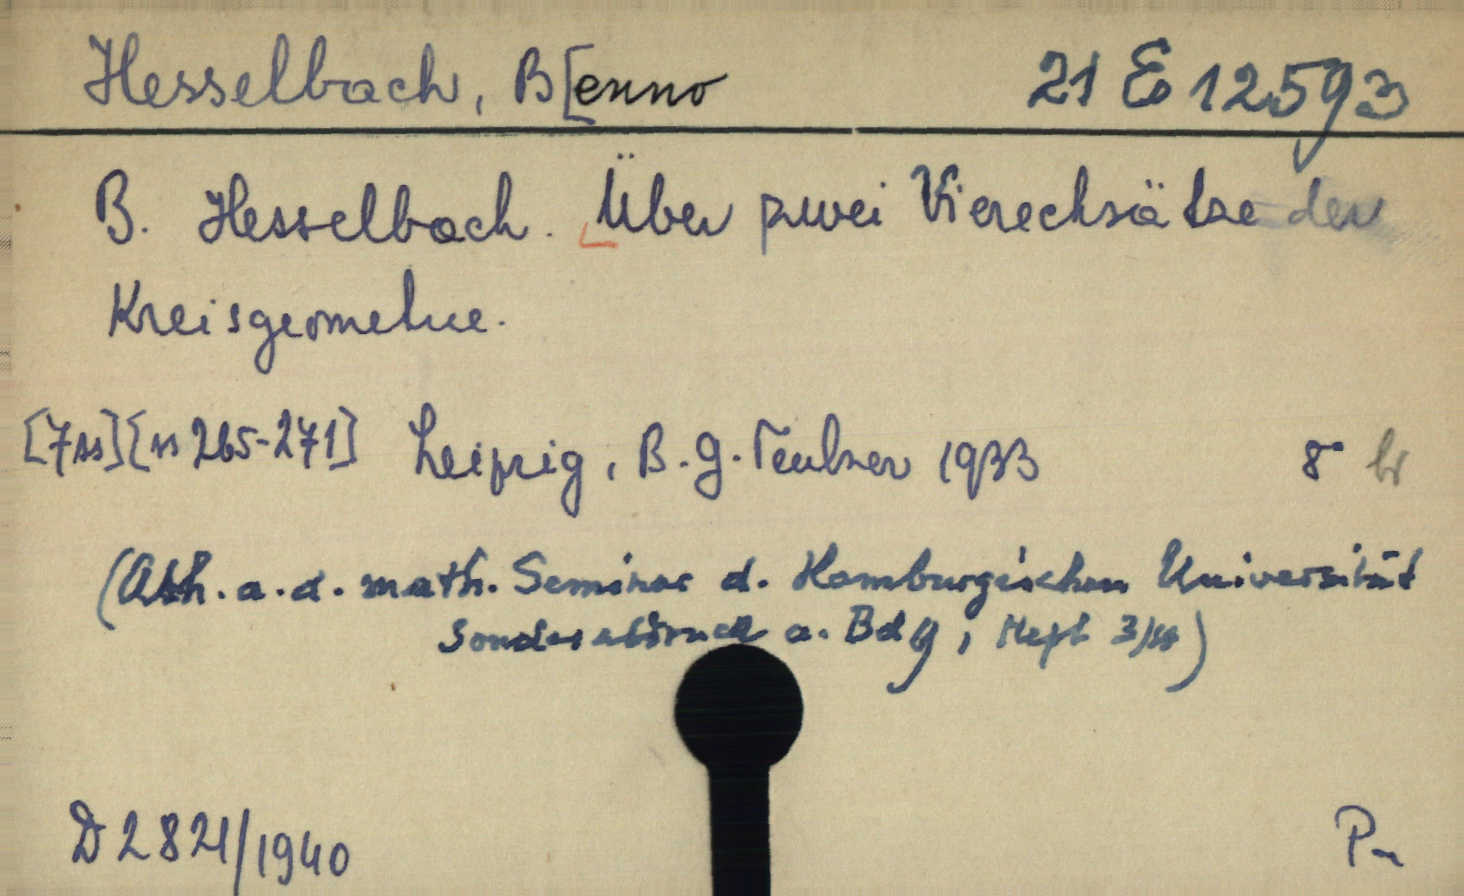 Hesselbach, B[enno 21 E 12593
B. Hesselbach. Über zwei Vierecksätze der
Kreisgeometrie.
[7 ss] [ss 265-271] Leipzig, B. G. Teubner 1933 8° br
(Abh. a. d. math. Seminar d. Hamburgischen Universität
Sonderabdruck a. Bd 9, Heft 3/
D 2821/1940